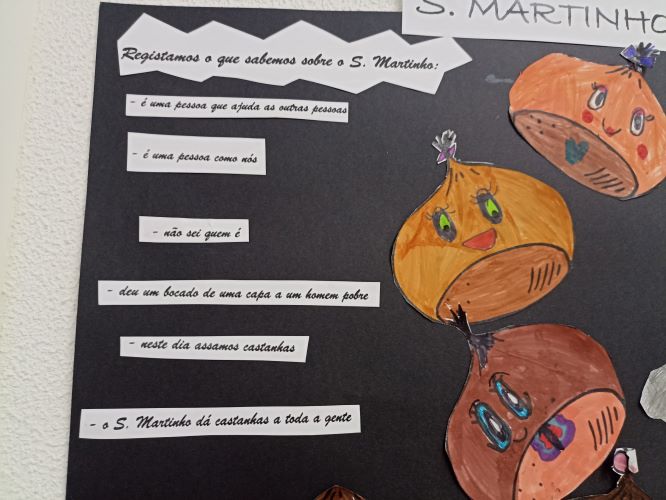 S. MARTINHO
Registamos o que sabemos sobre o S. Martinho:
- é uma pessoa que ajuda as outras pessoas
- é uma pessoa como nós
- não sei quem é
- deu um bocado de uma capa a um homem pobre
- neste dia assamos castanhas
- o S. Martinho dá castanhas a toda a gente